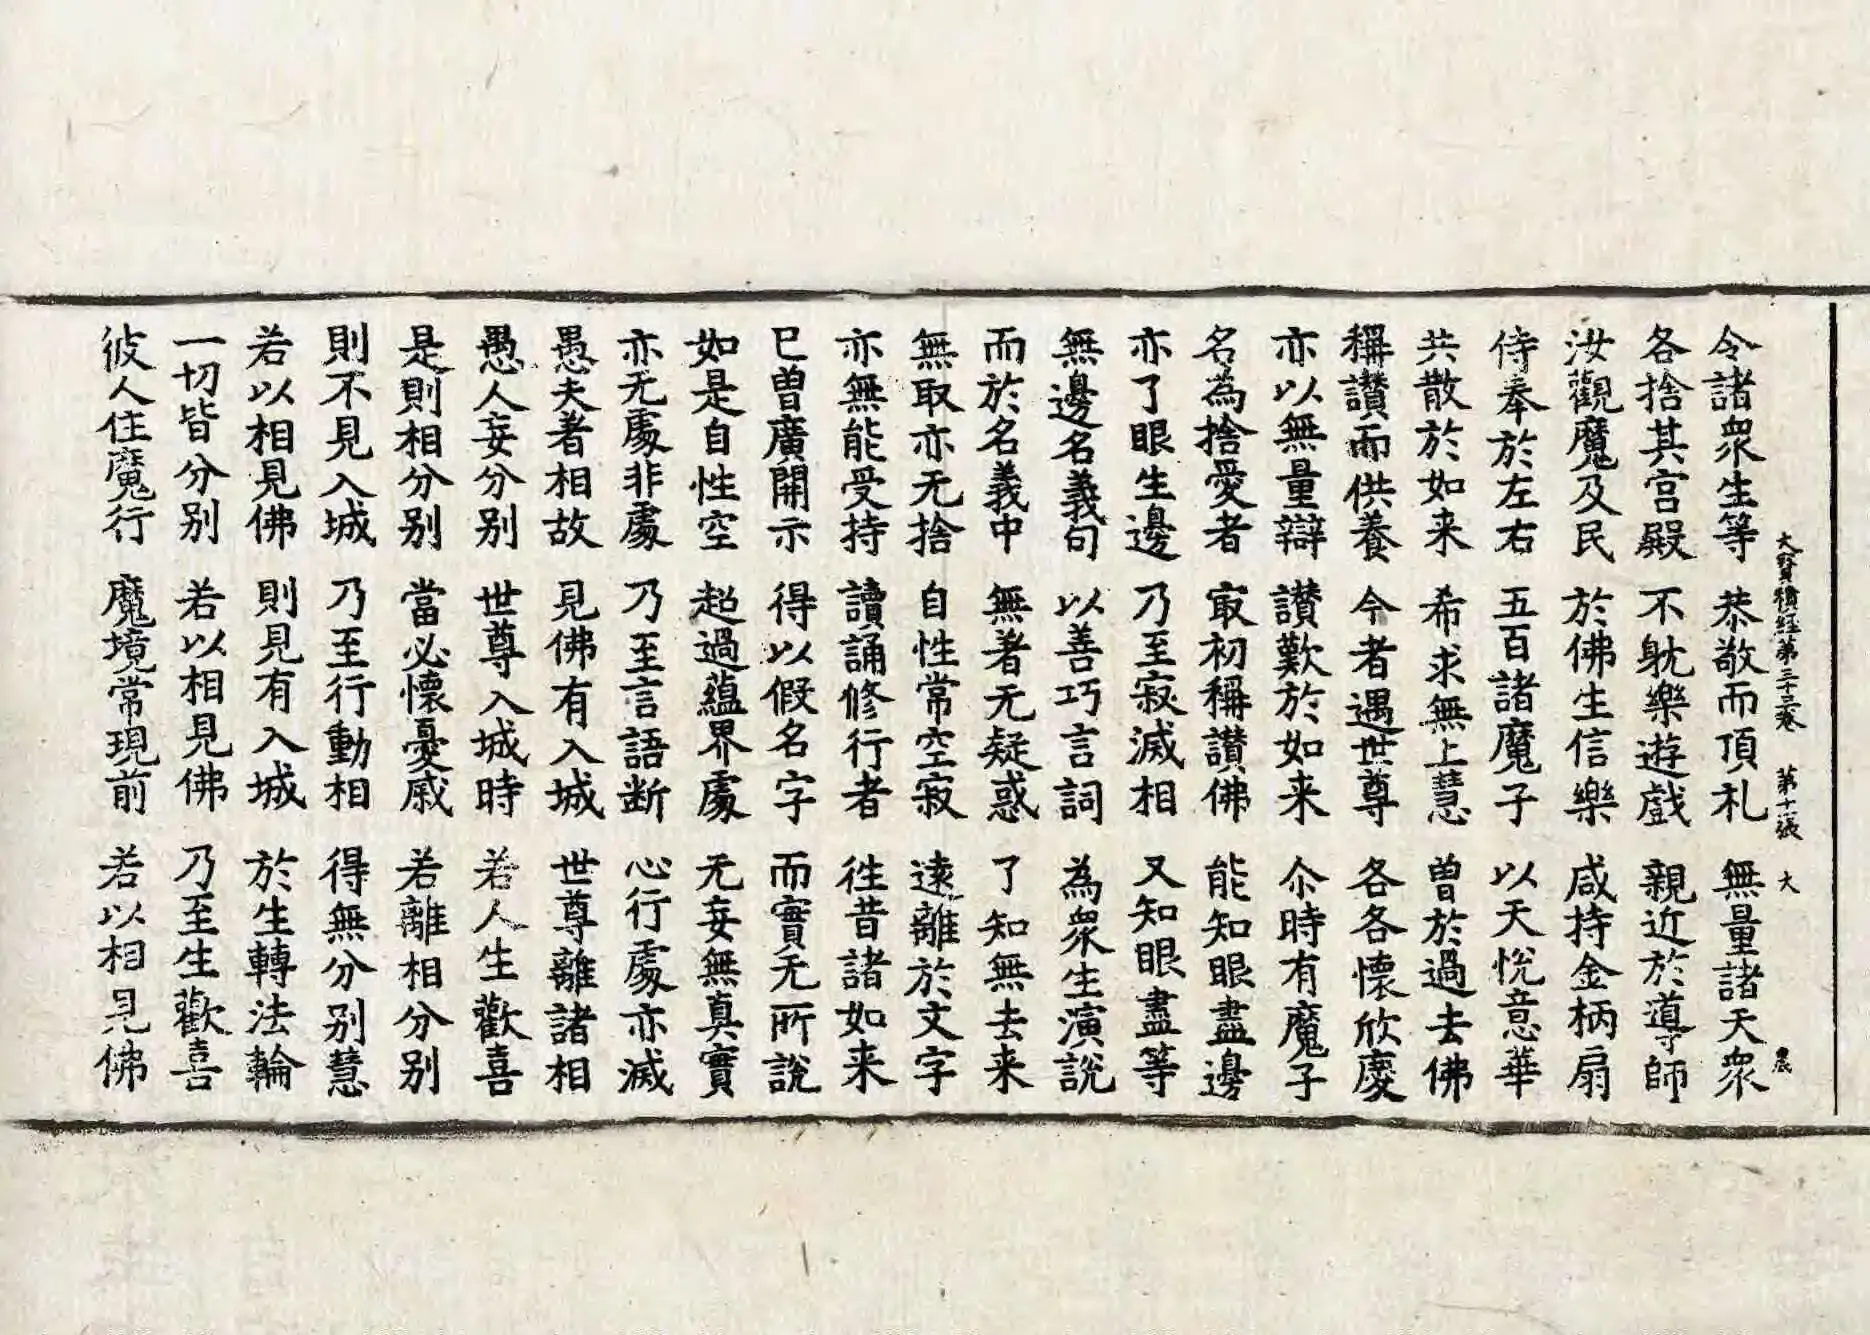 大寶積經第三十三卷　第十張　大　農
令諸衆生等　恭敬而頂札　無量諸天衆
各捨其宫殿　不躭樂遊戲　親近於導師
汝觀魔及民　於佛生信樂　咸持金柄扇
侍奉於左右　五百諸魔子　以天悅意華
共散於如来　希求無上慧　曽於過去佛
稱讃而供養　今者遇世尊　各各懷欣慶
亦以無量辯　讃歎於如来　尒時有魔子
名為捨愛者　㝡初稱讃佛　能知眼盡邊
亦了眼生邊　乃至寂滅相　又知眼盡等
無邊名義句　以善巧言詞　為衆生演説
而於名義中　無著无疑惑　了知無去来
無取亦无捨　自性常空寂　遠離於文字
亦無能受持　讀誦修行者　徃昔諸如来
已曽廣開示　得以假名字　而實无所説
如是自性空　超過蘊界處　无妄無真實
亦无處非處　乃至言語断　心行處亦滅
愚夫著相故　見佛有入城　世尊離諸相
愚人妄分别　世尊入城時　若人生歡喜
是則相分别　當必懷憂慼　若離相分别
則不見入城　乃至行動相　得無分别慧
若以相見佛　則見有入城　於生轉法輪
一切皆分别　若以相見佛　乃至生歡喜
彼人住魔行　魔境常現前　若以相見佛